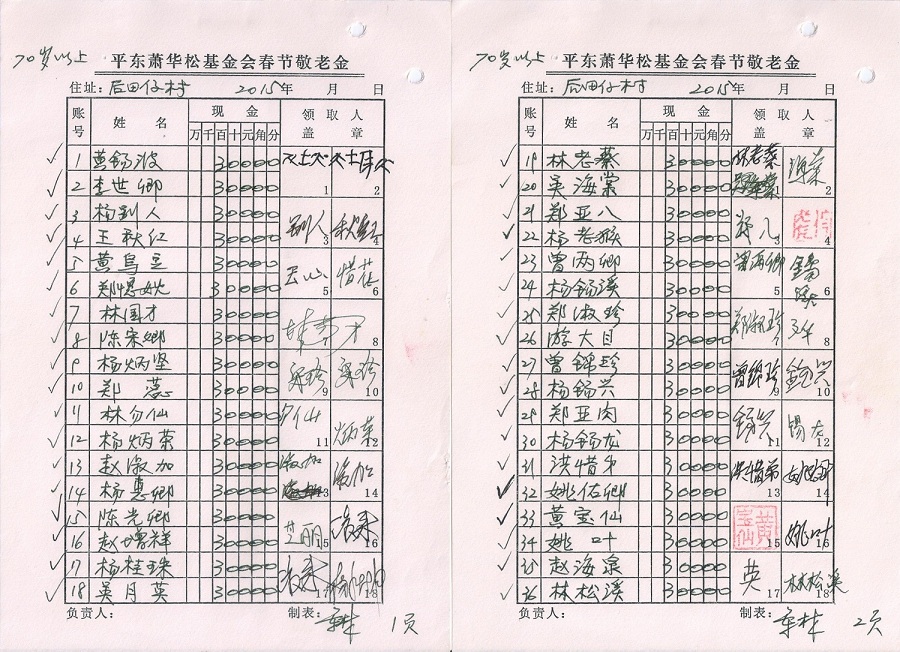 70岁以上 平东萧华松基金会春节敬老金
住址: 后田仔村 2015年 月 日
账号 姓名 现金 领取人盖章
万千百十元角分
1 黄锡波 30000 1 2
2 李世卿 30000
3 杨别人 30000 别人 3 秋红 4
4 王秋红 30000
5 黄乌豆 30000 5 惜花 6
6 郑 30000
7 林国才 30000 林国才 8
8 陈宋卿 30000
9 杨炳坚 30000 9 10
10 郑蕊 30000
11 林勿仙 30000 勿仙 11 炳菜 12
12 杨炳菜 30000
13 赵淑加 30000 淑加 13 14
14 杨惠卿 30000
15 陈光卿 30000 15 16
16 赵增祥 30000
17 杨桂珠 30000 17 18
18 吴月英 30000
负责人: 制表: 1页
70岁以上 平东萧华松基金会春节敬老金
住址: 后田仔村 2015年 月 日
账号 姓名 现金 领取人盖章
万千百十元角分
19 林老蔡 30000 林老蔡 1 2
20 吴海棠 30000
21 郑亚八 30000 郑八 3 4
22 杨老猴 30000
23 曾两卿 30000 曾两卿 5 6
24 杨锡溪 30000
25 郑淑珍 30000 郑淑珍 7 8
26 游大目 30000
27 曾锦珍 30000 曾锦珍 9 锡兴 10
28 杨锡兴 30000
29 郑亚肉 30000 锡兴 11 锡龙 12
30 杨锡龙 30000
31 洪惜弟 30000 洪惜弟 13 14
32 姚佑卿 30000
33 黄宝仙 30000 黄宝仙 15 姚叶 16
34 姚叶 30000
35 赵海泉 30000 英 17 林松溪 18
36 林松溪 30000
负责人: 制表: 2页